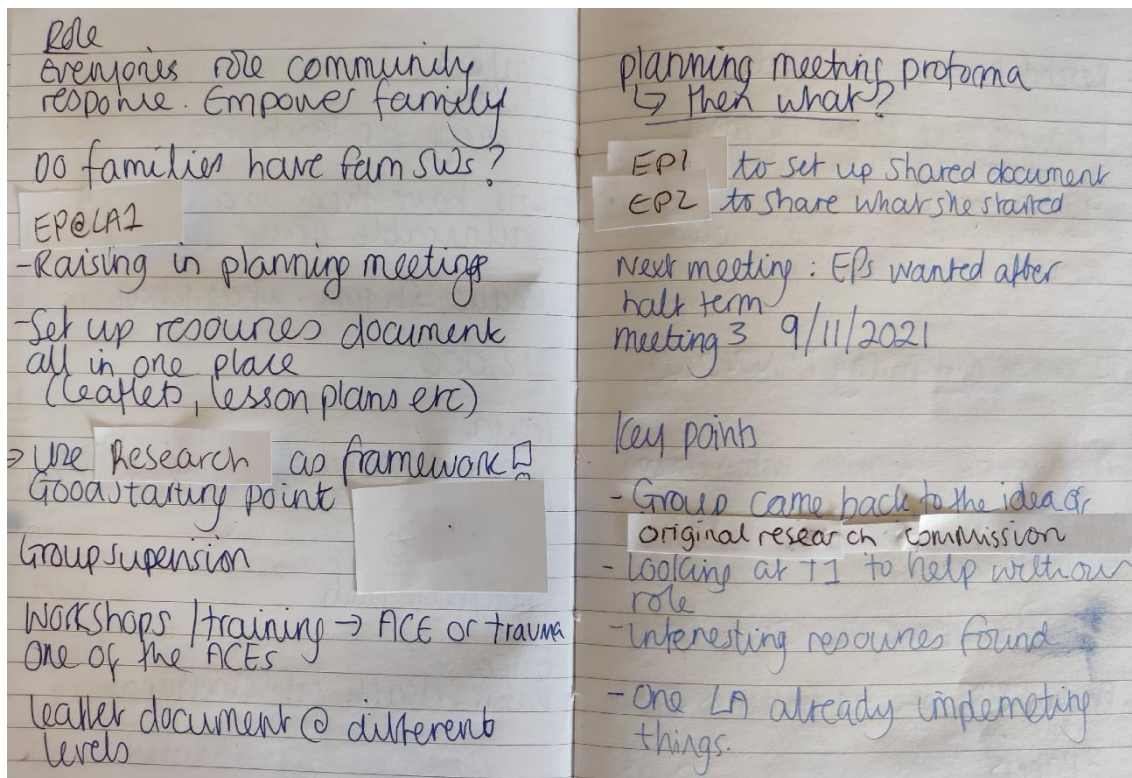 Role
Everyones role community
response. Empower family
Do families have fam SWs?
EP@LA1
-Raising in planning meetings
-Set up resources document
all in one place
(leaflets, lesson plans etc)
→ Use Research as framework
Good starting point
Group supervision
Workshops /training → ACE or trauma
one of the ACEs
leaflet document @ different
levels
planning meeting proforma
↳ then what?
EP1 to set up shared document
EP2 to share what she started
Next meeting : EPs wanted after
half term
meeting 3 9/11/2021
Key points
- Group came back to the idea of
original research commission
- looking at T1 to help with our
role
- Interesting resources found
- One LA already implemeting
things.